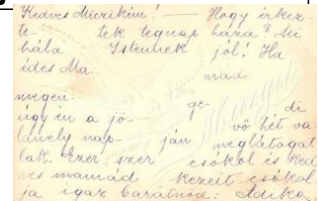 Kedves Miczikém! — Hogy érkez-
te- tek tegnap haza? Mi
hála Istennek jól! Ha
édes Ma- mád
megen- ge- di
úgy én a jö- vő hét va-
lamely nap- ján meglátogat
lak. Ezer szer csókol és ked
ves mamád kezeit csókol
ja igaz barátnőd: